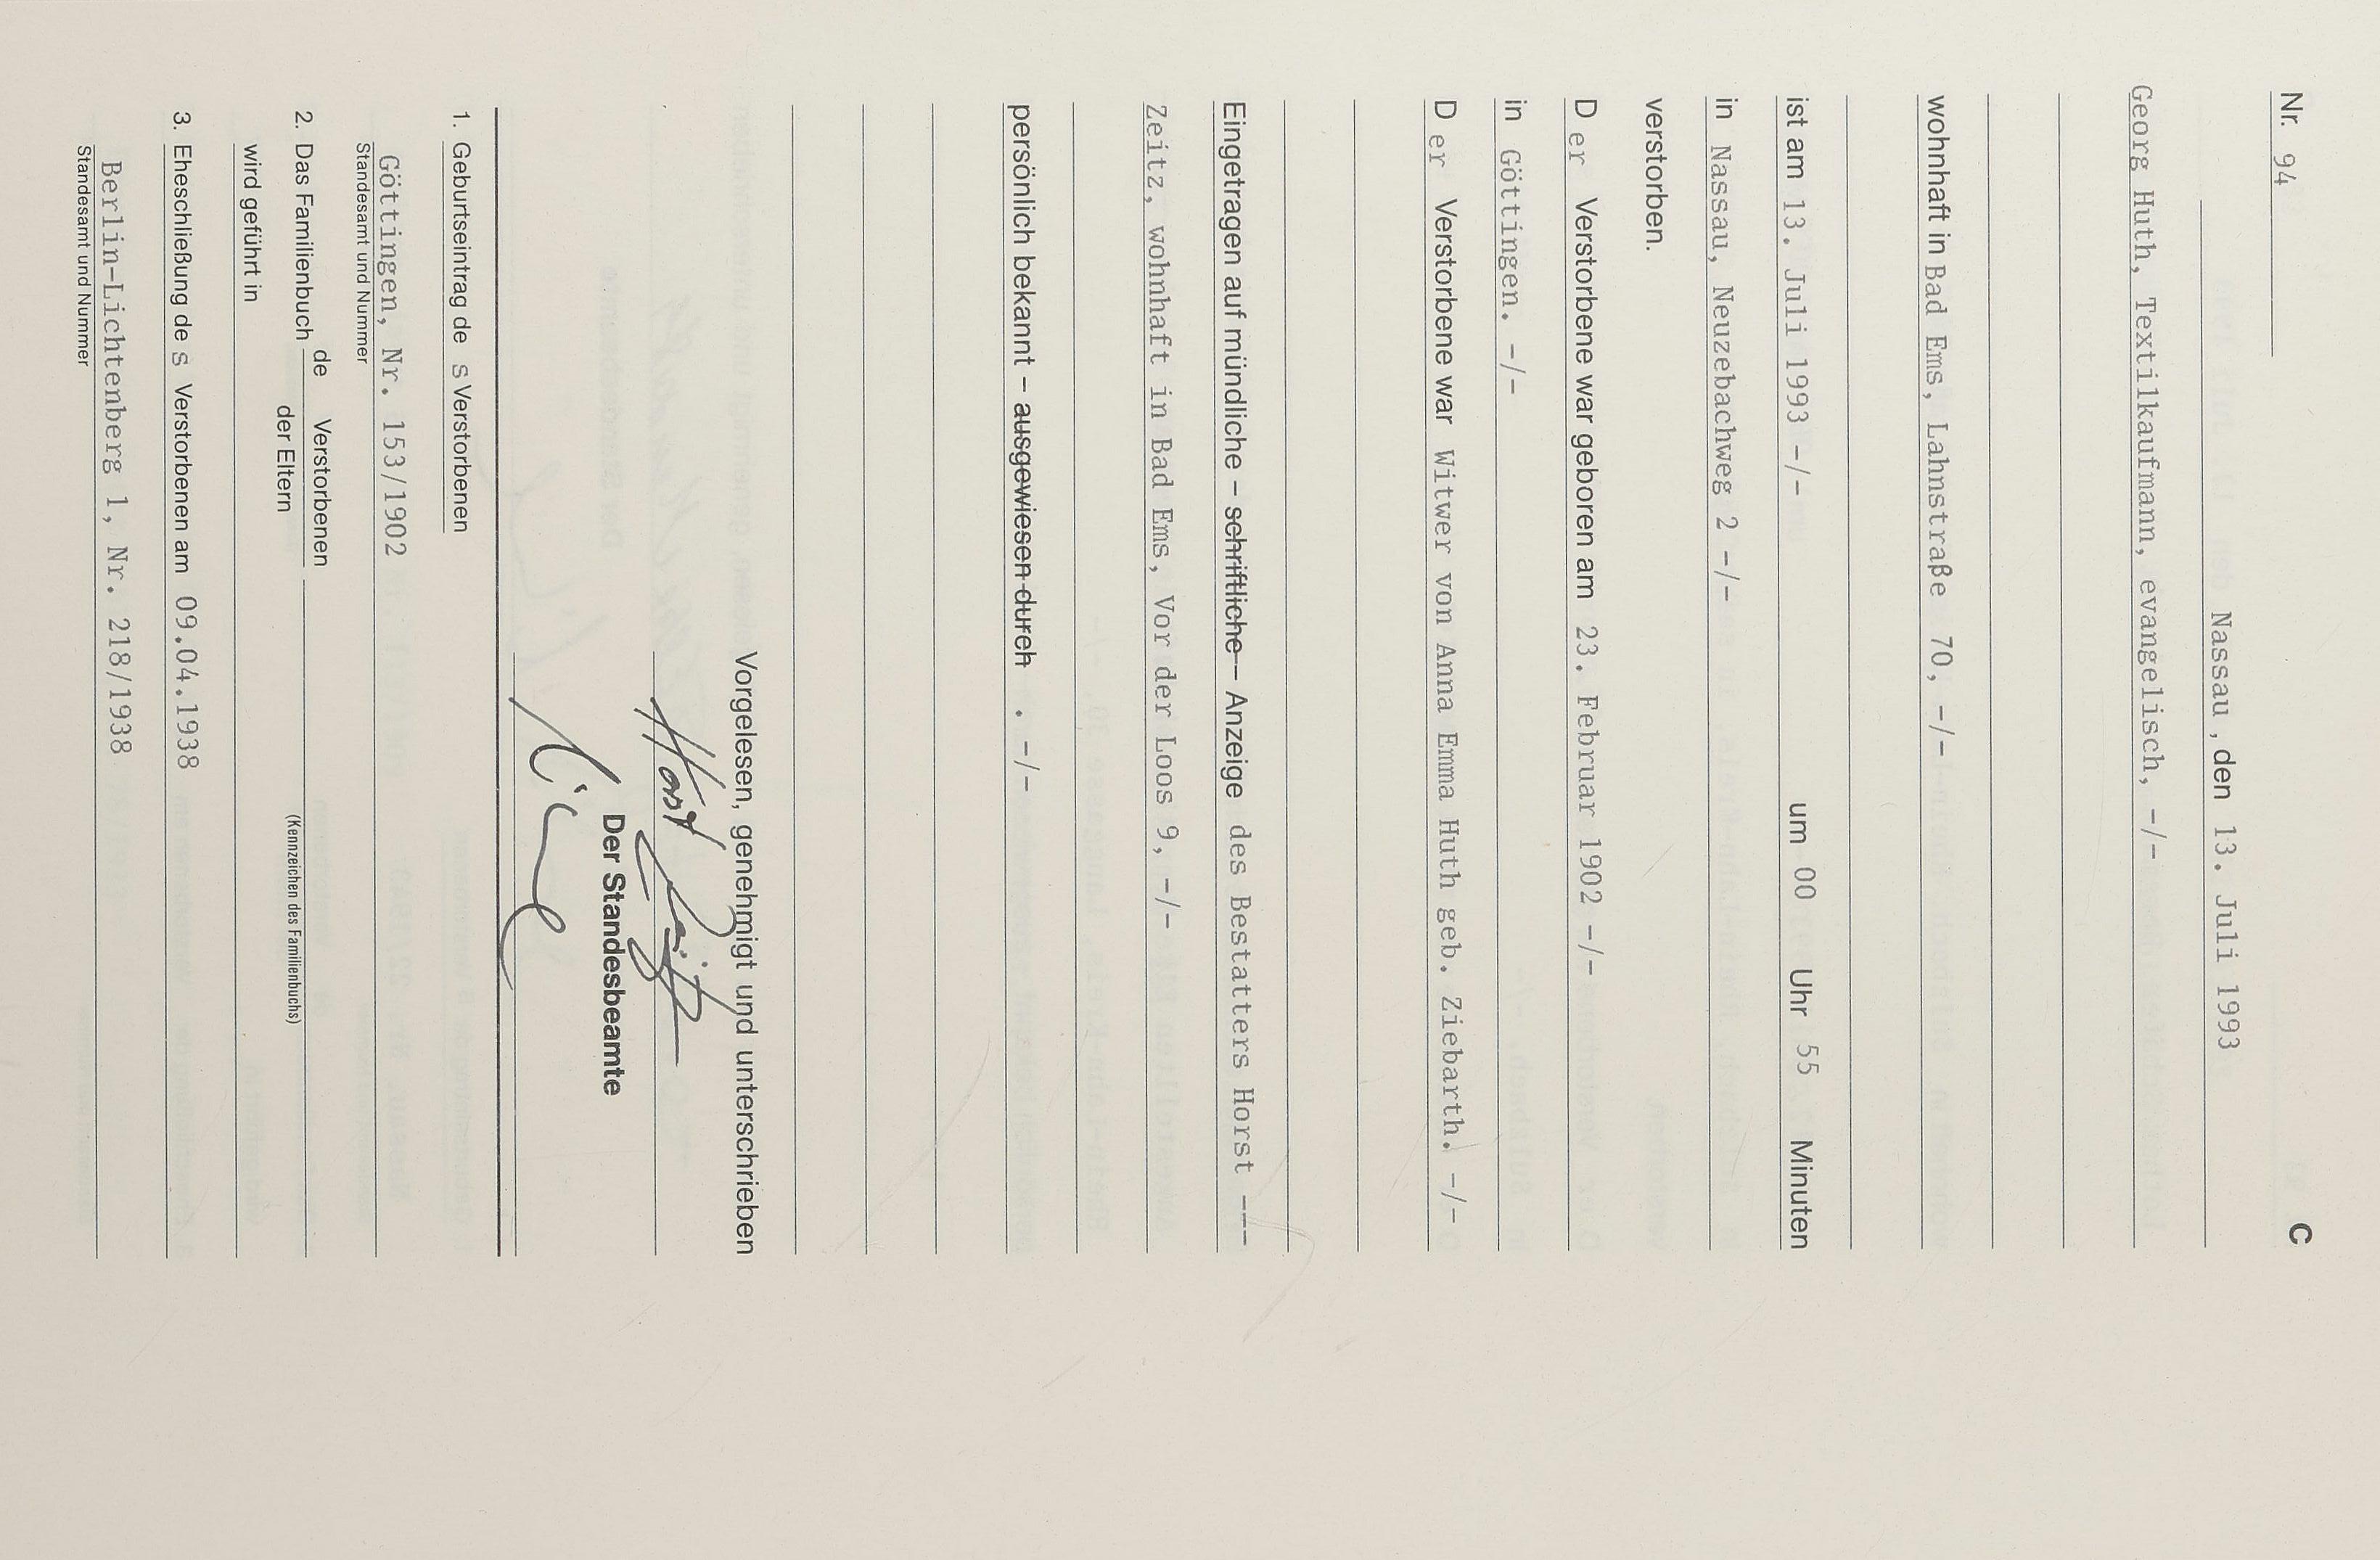 C
Nr. 94
Nassau, den 13. Juli 1993
Georg Huth, Textilkaufmann, evangelisch, -/-
wohnhaft in Bad Ems, Lahnstraße 70, -/-
ist am 13. Juli 1993 -/- um 00 Uhr 55 Minuten
in Nassau, Neuzebachweg 2 -/-
verstorben.
D er Verstorbene war geboren am 23. Februar 1902 -/-
in Göttingen. -/-
D er Verstorbene war Witwer von Anna Emma Huth geb. Ziebarth. -/-
Eingetragen auf mündliche – schriftliche – Anzeige des Bestatters Horst ---
Zeitz, wohnhaft in Bad Ems, Vor der Loos 9, -/-
persönlich bekannt – ausgewiesen durch . -/-
Vorgelesen, genehmigt und unterschrieben
Horst Zeitz
Der Standesbeamte
1. Geburtseintrag de s Verstorbenen
Göttingen, Nr. 153/1902
Standesamt und Nummer
2. Das Familienbuch de Verstorbenen
der Eltern
(Kennzeichen des Familienbuchs)
wird geführt in
3. Eheschließung de s Verstorbenen am 09.04.1938
Berlin-Lichtenberg 1, Nr. 218/1938
Standesamt und Nummer